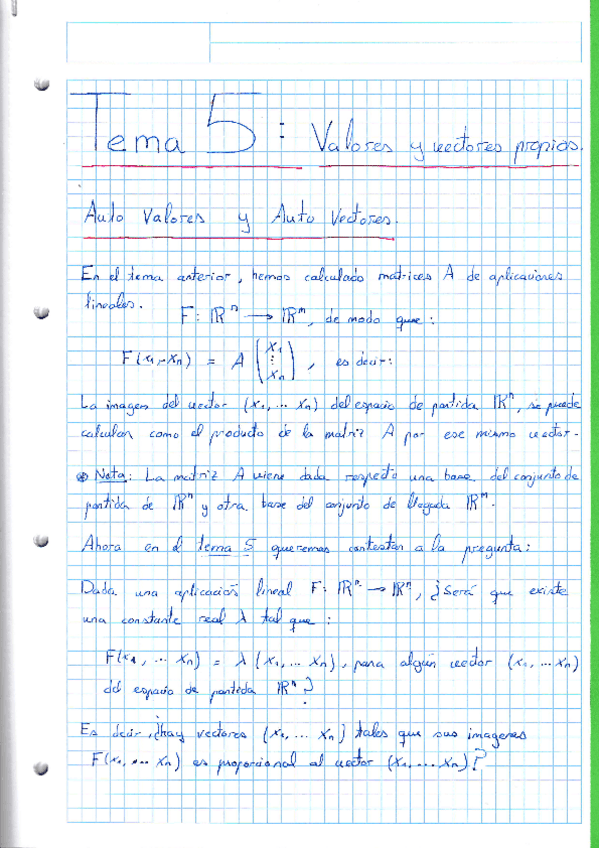 Tema 5: Valores y vectores propios.
Auto Valores y Auto Vectores.
En el tema anterior, hemos calculado matrices A de aplicaciones
lineales. F: ℝⁿ → ℝᵐ, de modo que:
F(x₁,..xₙ) = A (x₁ ⋮ xₙ), es decir:
La imagen del vector (x₁, ... xₙ) del espacio de partida ℝⁿ, se puede
calcular como el producto de la matriz A por ese mismo vector.
⊛ Nota: La matriz A viene dada respecto una base del conjunto de
partida de ℝⁿ y otra base del conjunto de llegada ℝᵐ.
Ahora en el tema 5 queremos contestar a la pregunta:
Dada una aplicación lineal F: ℝⁿ → ℝⁿ, ¿Será que existe
una constante real λ tal que:
F(x₁, ... xₙ) = λ (x₁, ... xₙ), para algún vector (x₁, ... xₙ)
del espacio de partida ℝⁿ?
Es decir, ¿hay vectores (x₁, ... xₙ) tales que sus imagenes
F(x₁, ... xₙ) es proporcional al vector (x₁, ... xₙ)?